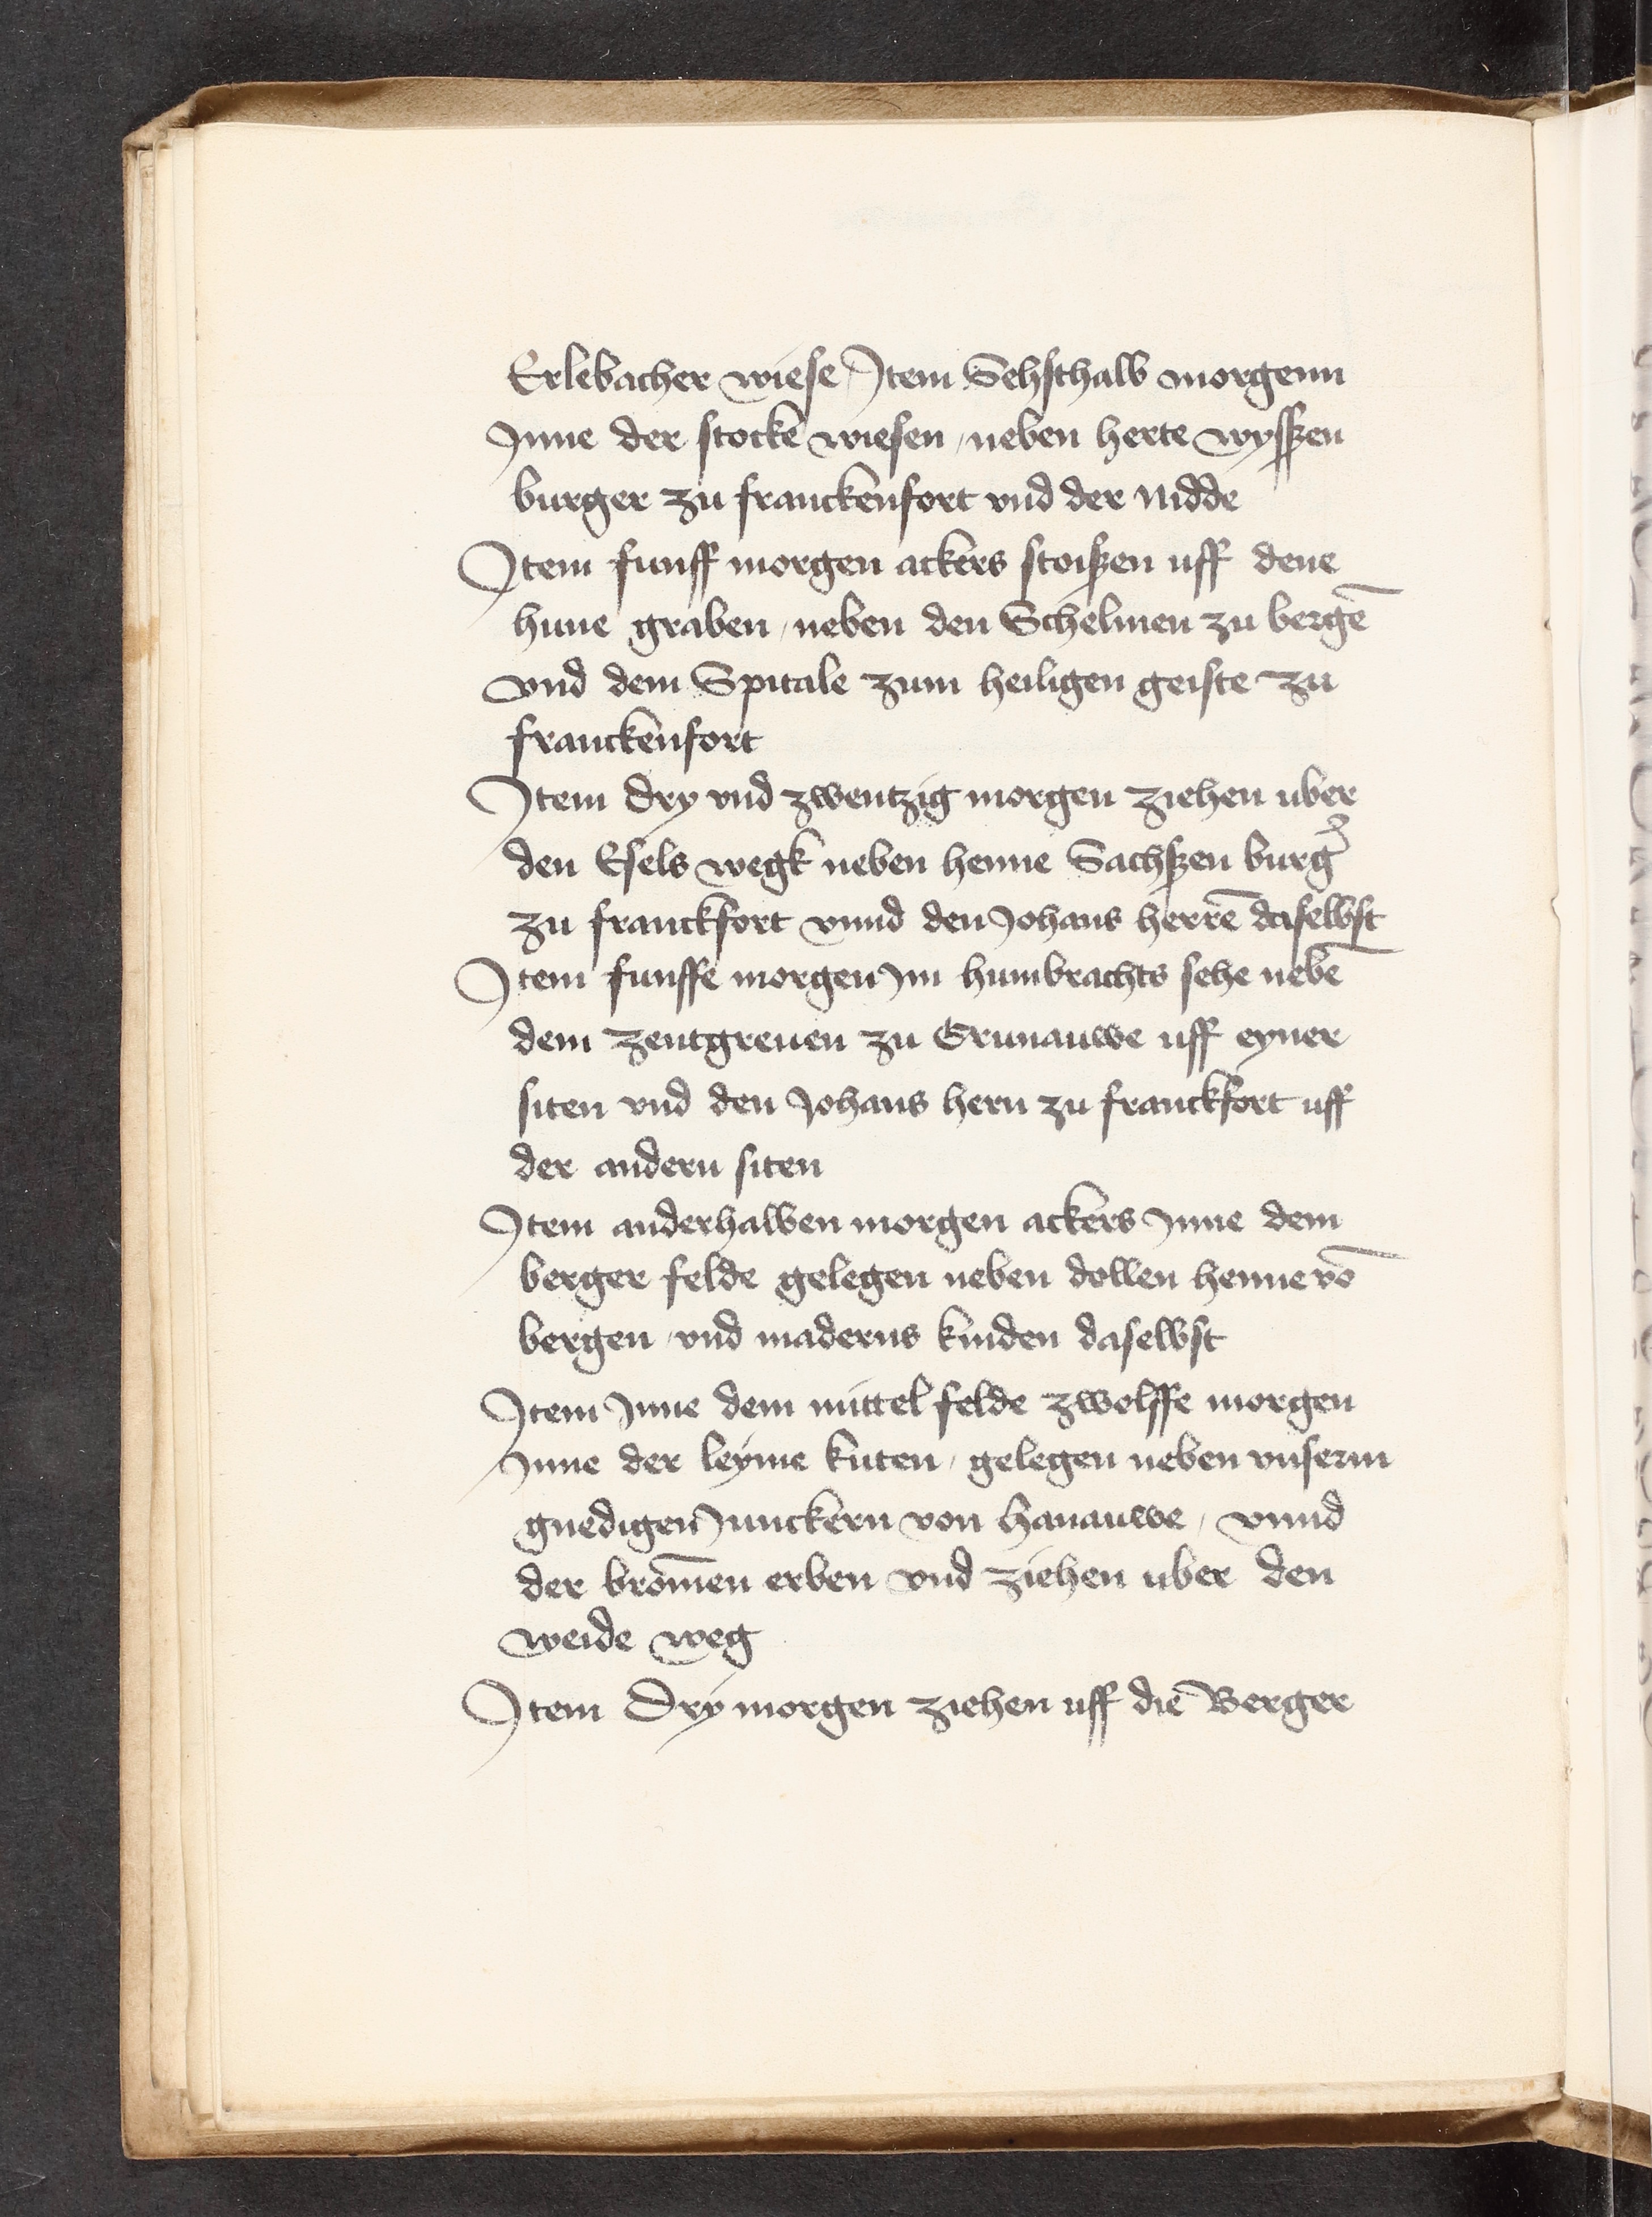 Erlebacher wiese Jtem Sehsthalb morgenn
Jnne der stocke wiesen, neben herte wysßen
burger zu franckenfort vnd der Nidde
Jtem funff morgen ackers stoißen uff dene
hune graben, neben den Schelmen zu bergē
vnd dem Spitale zum heiligen geiste zu
franckenfort
Jtem dry vnd zwentzig morgen ziehen uber
den Esels wegk neben henne Sachßen burg̉
zu franckfort vnnd den Johans herrē daselbst
Jtem funffe morgen Jm humbrachts sehe nebē
dem zentgreuen zu Grunauwe uff eyner
siten vnd den Johans hern zu franckfort uff
der andern siten
Jtem anderhalben morgen ackers Jnne dem
berger felde gelegen neben dollen henne vō
bergen, vnd maderns kinden daselbst
Jtem Jnne dem mittel felde zwolffe morgen
Jnne der leyme kuten, gelegen neben vnserm
gnedigen Junckern von hanauwe, vnnd
der brōmen erben vnd ziehen uber den
weide weg
Jtem Dry morgen ziehen uff die Berger